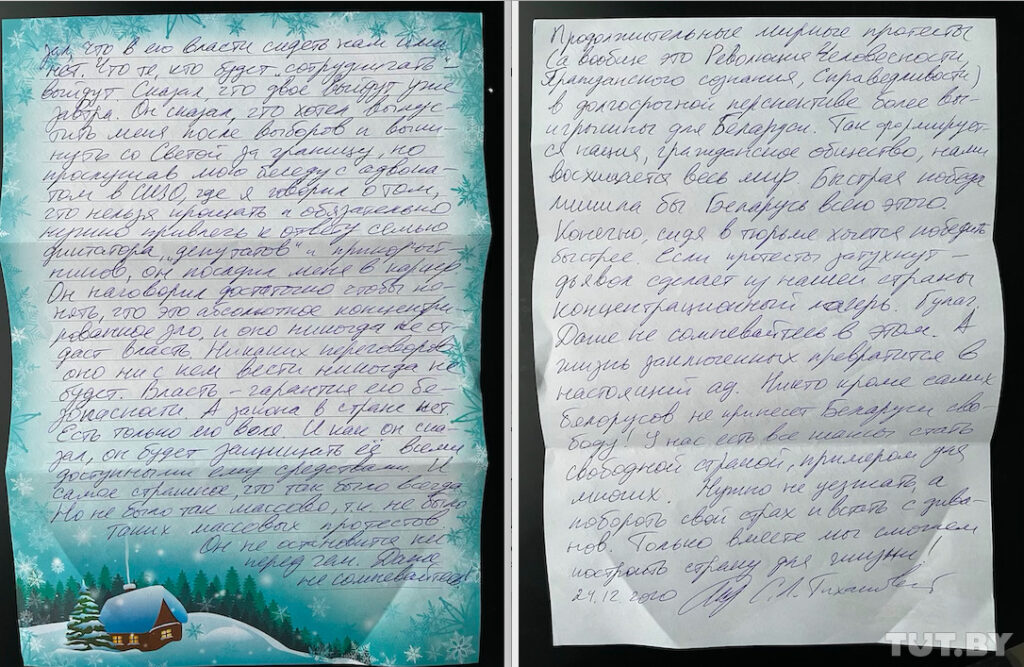 зал, что в его власти сидеть нам или
нет. Что те, кто будет "сотрудничать" -
выйдут. Сказал что двое выйдут уже
завтра. Он сказал, что хотел выпус-
тить меня после выборов и выки-
нуть со Светой за границу, но
прослушав мою беседу с адвока-
том в СИЗО, где я говорил о том,
что нельзя прощать и обязательно
нужно привлечь к ответу семью
диктатора, "депутатов" и
он посадил меня в карцер
Он наговорил достаточно чтобы по-
нять, что это абсолютное концентри-
рованное зло, и оно никогда не от-
даст власть. Никаких переговоров
оно ни с кем вести никогда не
будет. Власть - гарантия его бе-
зопасности. А закона в стране нет.
Есть только его воля. И как он ска-
зал, он будет защищать её всеми
доступными ему средствами. И
самое страшное, что так было всегда
Но не было так массово, т.к. не было
таких массовых протестов
Он не остановится ни
перед чем. Даже
не сомневайтесь!
Продолжительные мирные протесты
(а вообще это Революция Человечности,
Гражданского сознания, Справедливости)
в долгосрочной перспективе более вы-
игрышны для Беларуси. Так формирует-
ся нация, гражданское общество, нами
восхищается весь мир. Быстрая победа
лишила бы Беларусь всего этого.
Конечно, сидя в тюрьме хочется победить
быстрее. Если протесты затухнут -
дьявол сделает из нашей страны
концентрационный лагерь. Гулаг.
Даже не сомневайтесь в этом. А
жизнь заключенных превратится в
настоящий ад. Никто кроме самих
белорусов не принесет Беларуси сво-
боду! У нас есть все шансы стать
свободной страной, примером для
многих. Нужно не уезжать а
побороть свой страх и встать с дива-
нов. Только вместе мы сможем
построить страну для жизни!
24.12.2020 С.Л. Тихановский
TUT.BY